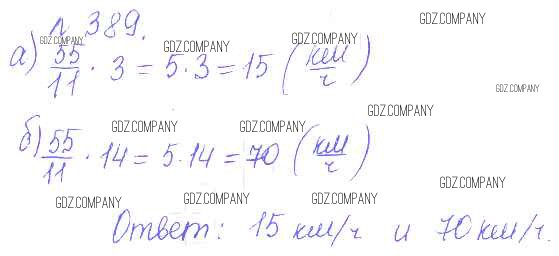 № 389.
GDZ.COMPANY
GDZ.COMPANY GDZ.COMPANY GDZ.COMPANY
а) 55/11 · 3 = 5·3 = 15 (км/ч)
GDZ.COMPANY
GDZ.COMPANY
GDZ.COMPANY GDZ.COMPANY
б) 55/11 · 14 = 5·14 = 70 (км/ч)
GDZ.COMPANY
GDZ.COMPANY GDZ.COMPANY GDZ.COMPANY
Ответ: 15 км/ч и 70 км/ч.
GDZ.COMPANY